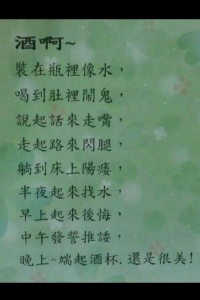 酒啊~
裝在瓶裡像水，
喝到肚裡鬧鬼，
說起話來走嘴，
走起路來閃腿，
躺到床上陽痿，
半夜起來找水，
早上起來後悔，
中午發誓推諉，
晚上~端起酒杯.還是很美!